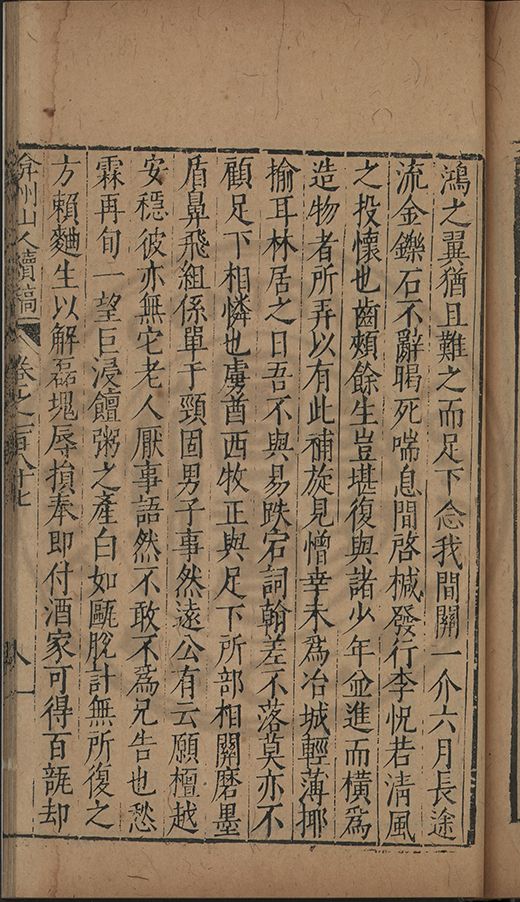 鴻之翼猶且難之而足下念我間關一介六月長途
流金鑠石不辭暍死喘息間啓槭發行李恍若清風
之投懷也齒頰餘生豈堪復與諸少年並進而橫爲
造物者所弄以有此補旋見憎幸未爲冶城輕薄揶
揄耳林居之日吾不與易跌宕詞翰差不落莫亦不
顧足下相憐也虜酋西牧正與足下所部相關磨墨
盾鼻飛組係單于頸固男子事然遠公有云願檀越
安穩彼亦無它老人厭事語然不敢不爲兄告也愁
霖再旬一望巨浸饘粥之產白如甌脫計無所復之
方賴麯生以解磊塊辱損奉即付酒家可得百瓻却
弇州山人續稿
卷之一百八十七
八